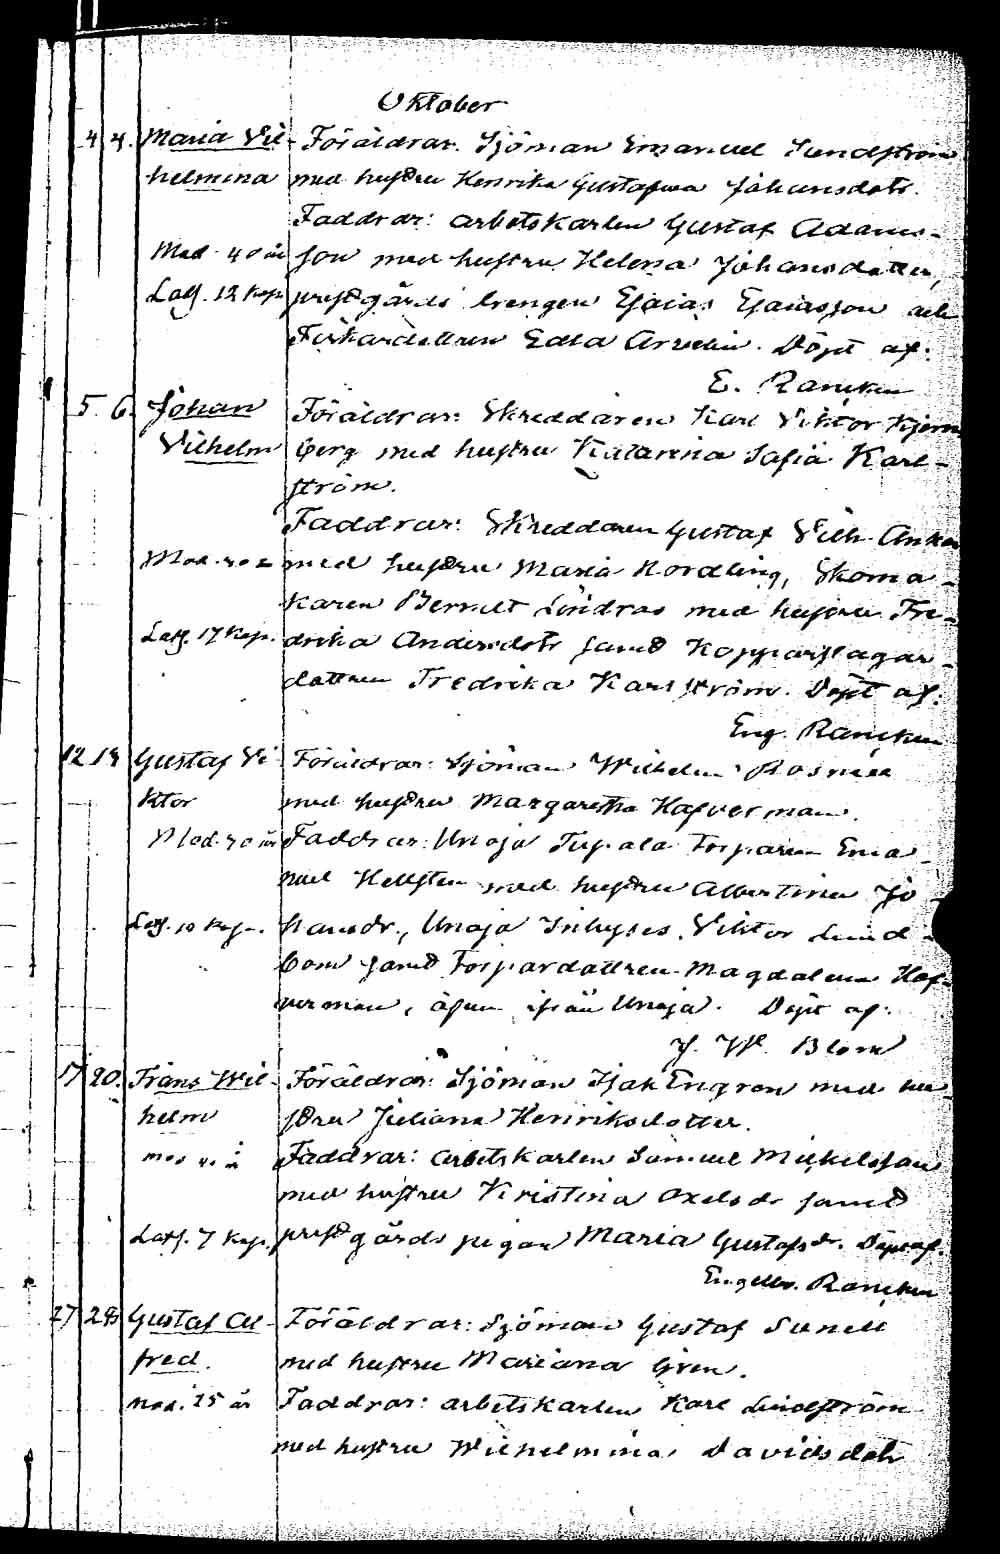 Oktober
4 4. Maria Vil- Föräldrar: Sjöman Emanuel Sundström
helmina med hustru Henrika Gustafva Johansdotr.
Faddrar: arbetskarlen Gustaf Adams-
Mod. 40 år son med hustru Helena Johansdotter,
Latf. 12 kop. prestgårds drengen Esaias Esaiasson och
Fiskardottren Edla Arvelin. Döpt af:
E. Rancken
5. 6. Johan Föräldrar: Skreddaren Karl Viktor Hjerm
Vilhelm berg med hustru Katarina Sofia Karl-
ström.
Faddrar: Skreddaren Gustaf Vilh.
Mod. med hustru Maria Nordling, Skoma-
karen Berndt Lindroos med hustru Fre-
Latf. 17 kop. drika Andersdotr samt Kopparslagar-
dottren Fredrika Karlström. Döpt af:
Eng. Rancken
12 Gustaf Vi- Föräldrar: Sjöman Wilhelm Rosnell
ktor med hustru Margaretha Hafverman.
Mod. 30 år Faddrar: Unaja Tupala Torparen Ema-
nuel Hellsten med hustru Albertina Jo-
Latf. 10 kop. hansdr., Unaja Inhyses Viktor Lind-
bom samt Torpardottren Magdalena Haf-
verman, äfven ifrån Unaja. Döpt af:
Blom
17 20. Frans Wil- Föräldrar: Sjöman Isak Engren med hu-
helm stru Juliana Henriksdotter.
Mod. Faddrar: arbetskarlen Samuel Mickelsson
med hustru Kristina Axelsdr samt
Latf. 7 kop. prestgårds pigan Maria Gustafsdr. Döpt af.
Engelbr. Rancken
27 28 Gustaf Al- Föräldrar: Sjöman Gustaf Sunell
fred. med hustru Mariana Gren.
Mod. 25 år Faddrar: arbetskarlen Karl Lindström
med hustru Wilhelmina Davidsdotr